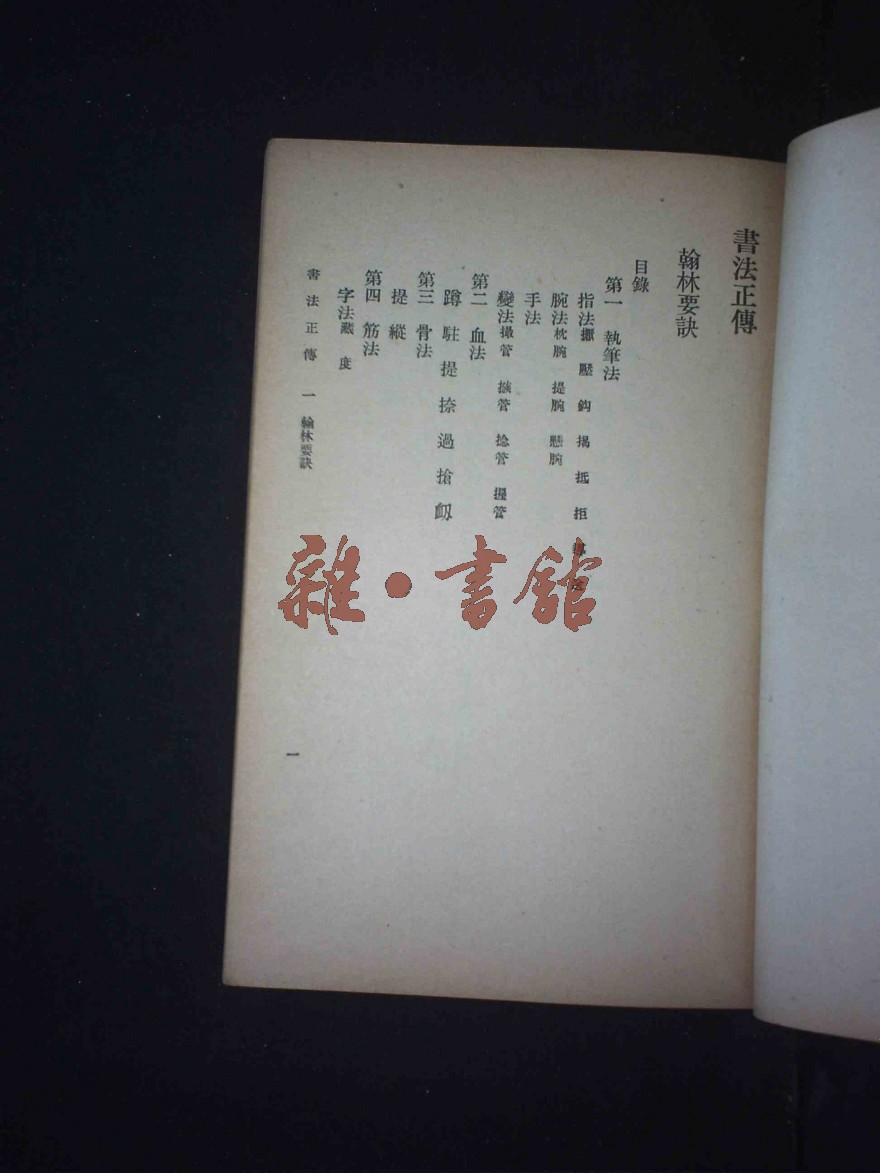 書法正傳
翰林要訣
目錄
第一 執筆法
指法擫 壓 鈎 揭 抵 拒 導 送
腕法枕腕 提腕 懸腕
手法
變法撮管 捻管 握管
第二 血法
蹲 駐 提 捺 過 搶 衂
第三 骨法
提 縱
第四 筋法
字法藏 度
書法正傳 一 翰林要訣
一
雜·書館